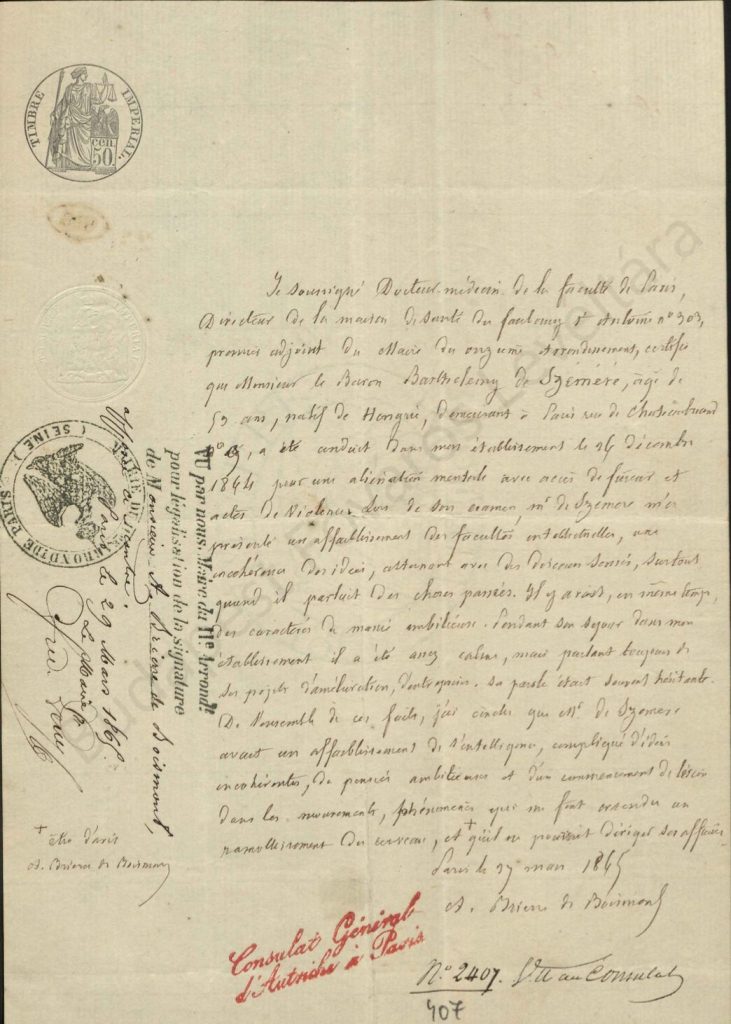 TIMBRE IMPERIAL.
cen
50
Je soussigné Docteur-médecin de la faculté de Paris,
Directeur de la maison de santé du faubourg St Antoine n° 303,
premier adjoint du Maire du onzième arrondissement, certifie
que Monsieur le Baron Barthélemy de Szemèré, agé de
53 ans, natif de Hongrie, demeurant à Paris rue de Chateaubriand
n°, a été conduit dans mon établissement le 26 décembre
1864 pour une aliénation mentale avec accès de fureur et
actes de violence. Lors de son examen Mr de Szemere m'a
présenté un affaiblissement des facultés intellectuelles, une
incohérence des idées, alternant avec des discours sensés, surtout
quand il parlait des choses passées. Il y avait, en même temps,
des caractères de manie ambitieuse. Pendant son séjour dans mon
établissement il a été assez calme, mais parlant toujours de
ses projets d'amélioration, sa parole était souvent hésitante.
De l'ensemble de ces faits, j'ai conclu que Mr de Szemere
avait un affaiblissement de l'intelligence, compliqué d'idées
incohérentes, de pensées ambitieuses et d'un commencement de lésion
dans les mouvements, phénomènes qui me font craindre un
ramollissement du cerveau, et + qu'il ne pourrait diriger ses affaires
Paris le 27 mars 1865
A. Brierre de Boismont
+ être d'avis
A. Brierre de Boismont
VU par nous, Maire du 11e Arrondt
pour légalisation de la signature
de Monsieur A. Brierre de Boismont,
Paris, le 29 Mars 1865
Le Maire
(SEINE)
ARROND! DE PARIS
Consulat Général
d'Autriche à Paris
N° 2407. Vu au Consulat
407